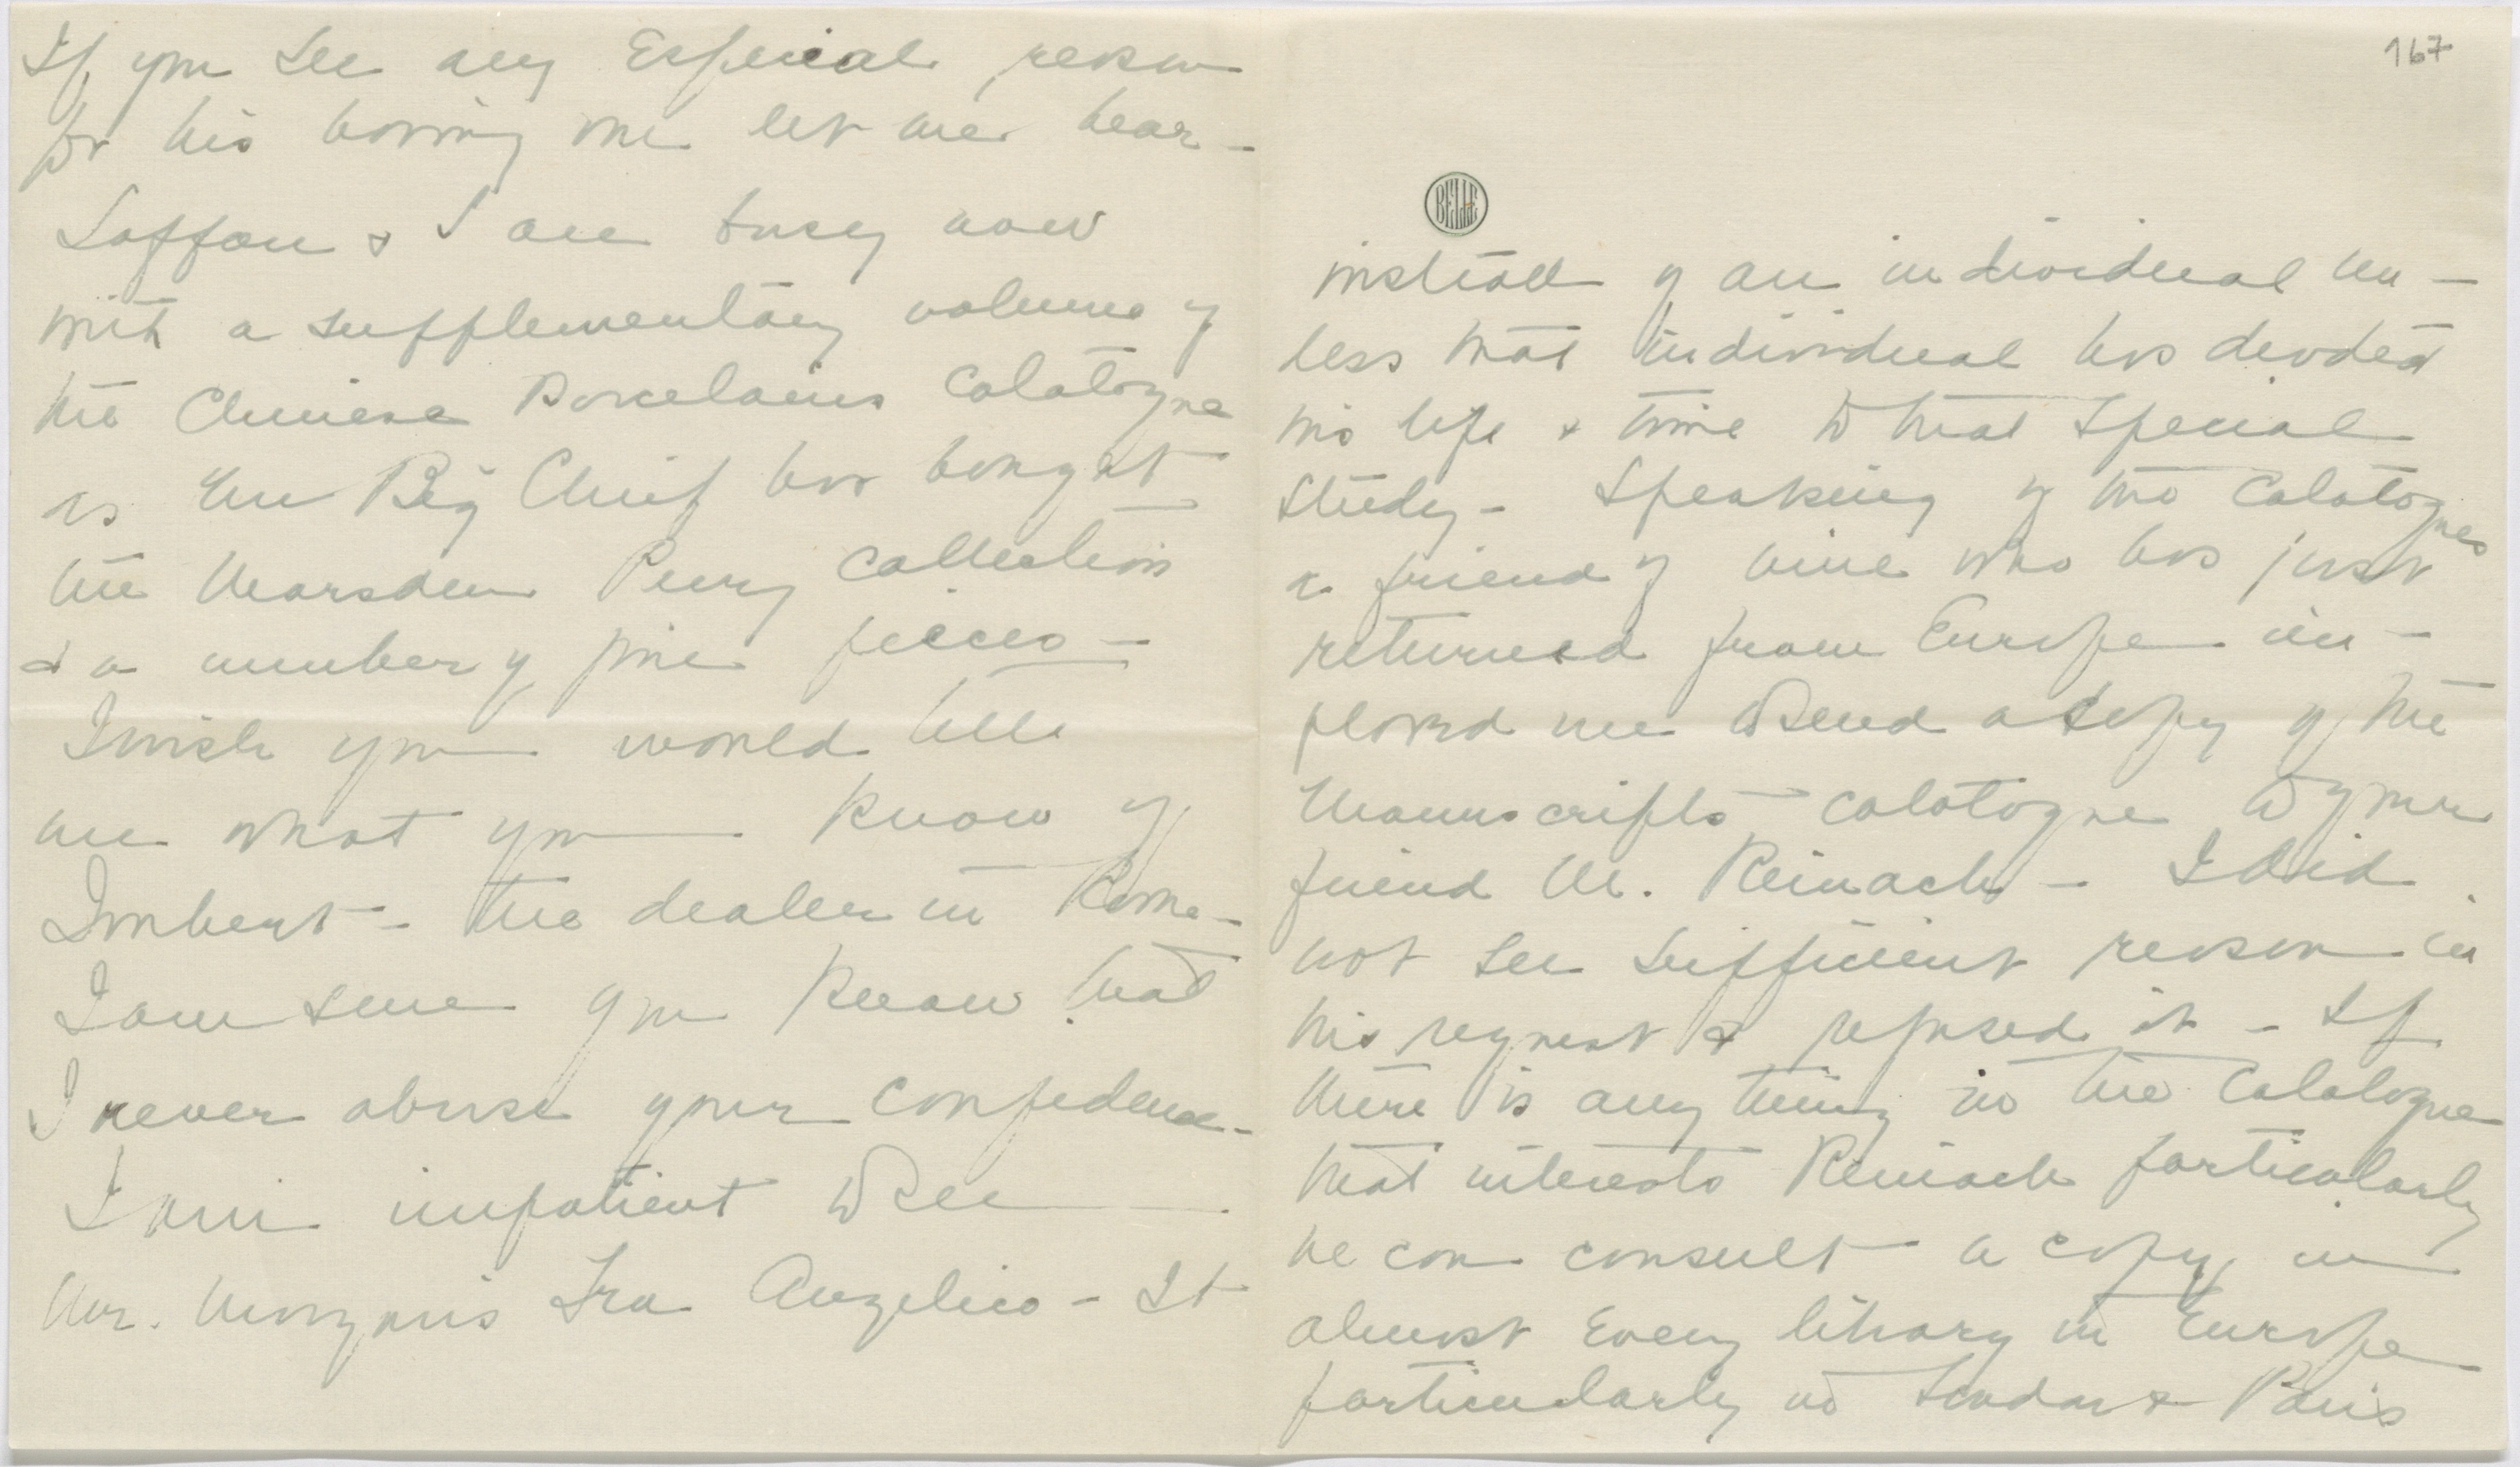 If you see any Especial reason
for his having one let me hear -
Laffan & I are busy now
with a supplementary volume of
the Chinese Porcelains Catalogue
as the Big Chief has bought
the Marsden Perry collection
& a number of fine pieces -
I wish you would tell
me what you know of
Imbert - the dealer in Rome -
I am sure you know that
I never abuse your confidence -
I am impatient to see
Mr. Morgans Fra Angelico - It
167
BELLE
instead of an individual un -
less that individual has devoted
his life & time to that special
study - Speaking of the Catalogues
a friend of mine who has just
returned from Europe im -
plored me to send a copy of the
Manuscripts catalogue to your
friend M. Reinach - I did
not see sufficient reason in
his request & refused it - If
there is any thing in the Catalogue
that interests Reinach particularly
he can consult a copy in
almost Every library in Europe
particularly in London & Paris